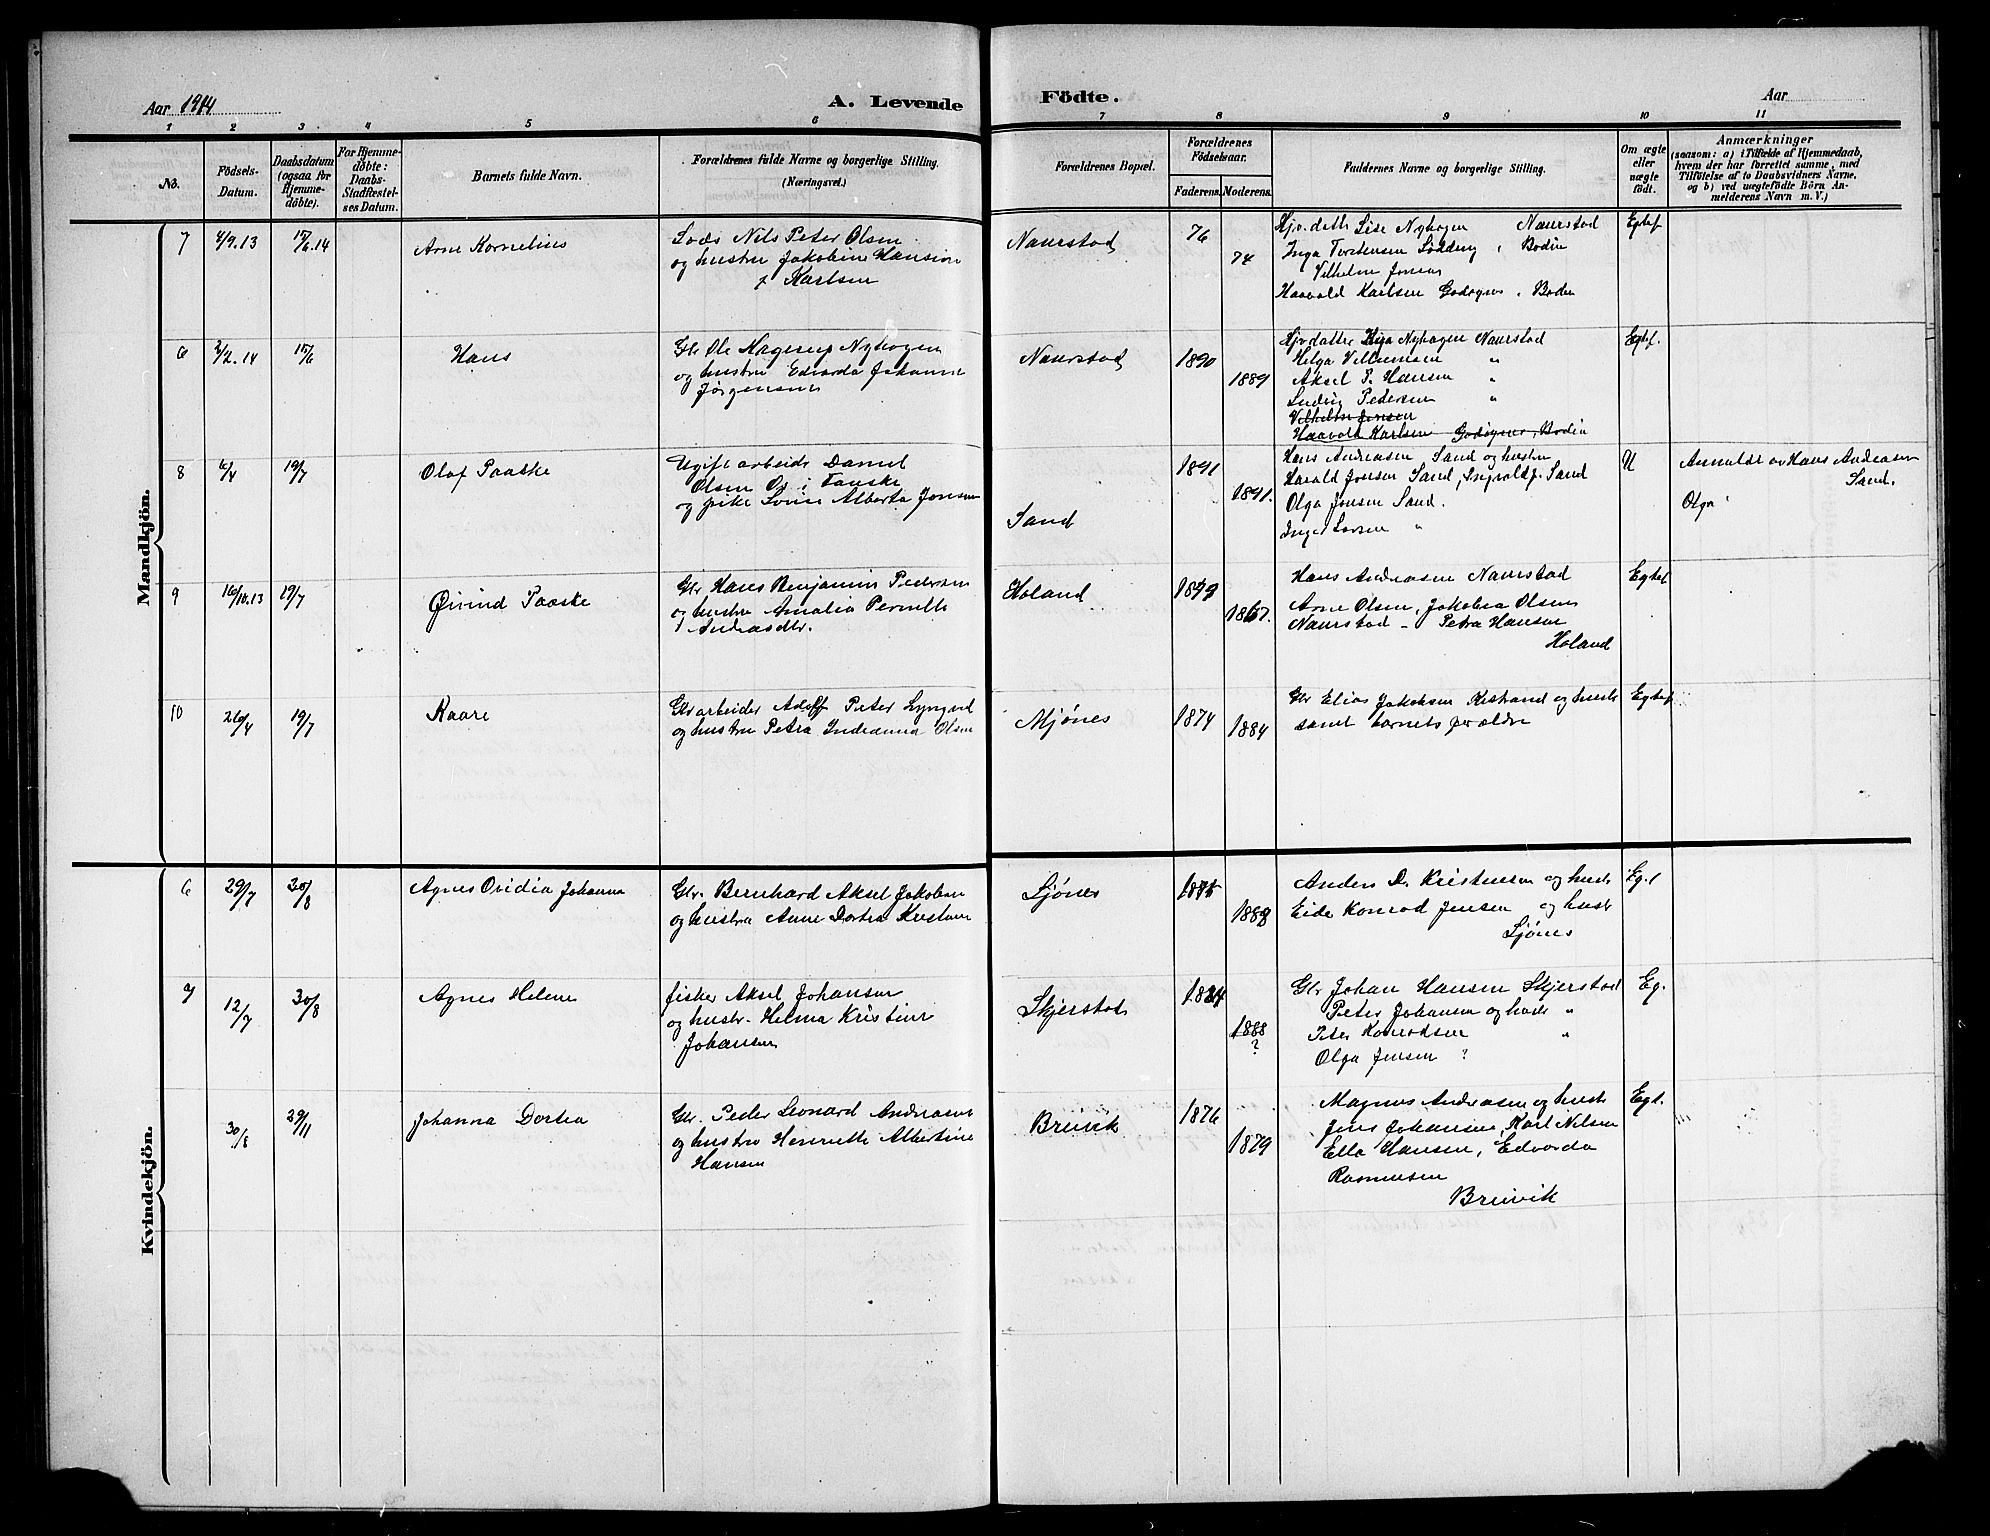 Aar 1914
A. Levende Födte.
Aar
1 2 3 4 5 6 7 8 9 10 11
No.
Födsels-Datum.
Daabsdatum (ogsaa for Hjemmedöbte).
For Hjemmedöbte: Daabs-Stadfæstelses Datum.
Barnets fulde Navn.
Forældrenes fulde Navne og borgerlige Stilling.
(Næringsvei.)
Forældrenes Bopæl.
Forældrenes Födselsaar.
Faderens. Moderens.
Faddernes Navne og borgerlige Stilling.
Om ægte eller uægte födt.
Anmærkninger
(saasom: a) i Tilfælde af Hjemmedaab, hvem der har forrettet samme, med Tilföielse af to Daabsvidners Navne, og b) ved uægtefödte Börn Anmelderens Navn m. V.)
Mandkjön.
7 4/9.13 15/6.14 Arne Kornelius
Nils Peter Olsen
og hustru Jakobine Hansine
Karlsen
Naurstad 76 74
Lise Nyhagen Naurstad
Inga Torstensen Bodin
Vilhelm Jensen
Haavald Karlsen Godøynes, Bodin
Egtef.
6 2/2.14 15/6 Hans
Gbr Ole Hagerup Nyhagen
og hustru Edvarda Johanne
Jørgensen
Naurstad 1890 1889
Nyhagen Naurstad
Helga Villumsen "
Aksel P. Hansen "
Ludvig Pedersen "
Vilhelm Jensen
Haavald Karlsen Godøynes, Bodin
Egtef.
8 6/4 19/7 Olaf Paaske
Ugift arbeider Daniel
Olsen Os i Fauske
og pike Lovise Alberta Jensen
Sand 1891 1891.
Hans Andreasen Sand og hustru
Harald Jensen Sand, Ingvald J. Sand
Olga Jensen Sand.
Inger Larsen "
U
Anmeldt av Hans Andreasen
Sand.
Olga "
9 16/10.13 19/7 Øivind Paaske
Gbr Hans Benjamin Pedersen
og hustru Amalia Pernille
Andreasdtr.
Holand 1867.
Hans Andreasen Naurstad
Arne Olsen, Jakobia Olsen
Naurstad - Petra Hansen
Holand
Egtef
10 26/4 19/7 Kaare
Gbr arbeider Adolf Peter
og hustru Petra Indianna Olsen
Mjønes 1874 1884
Gbr Elias Jakobsen og hustr
samt barnets forældre
Egtef
Kvindekjön.
6 29/7 30/8 Agnes Ovidia Johanna
Gbr. Bernhard Aksel Jakobsen
og hustru Anne Dortea Kristensen
Ljønes 1888
Anders D. Kristensen og hustr
Eide Konrad Jensen og hustr
Ljønes
Egt
7 12/7 30/8 Agnes Helene
fisker Aksel Johansen
og hustr. Helma Kristine
Johansen
Skjerstad 1888
?
Gbr Johan Hansen Skjerstad
Peter Johansen og hustr "
Peter Konradsen "
Olga Jensen ?
Eg.
30/8 29/11 Johanna Dortea
Gbr. Peder Leonard Andreasen
og hustru Henriette Albertine
Hansen
Breivik 1876 1879
Magnus Andreasen og hustr
Jens Johansen, Karl Nilsen
Ella Hansen, Edvarda
Rasmussen
Breivik
Egt.